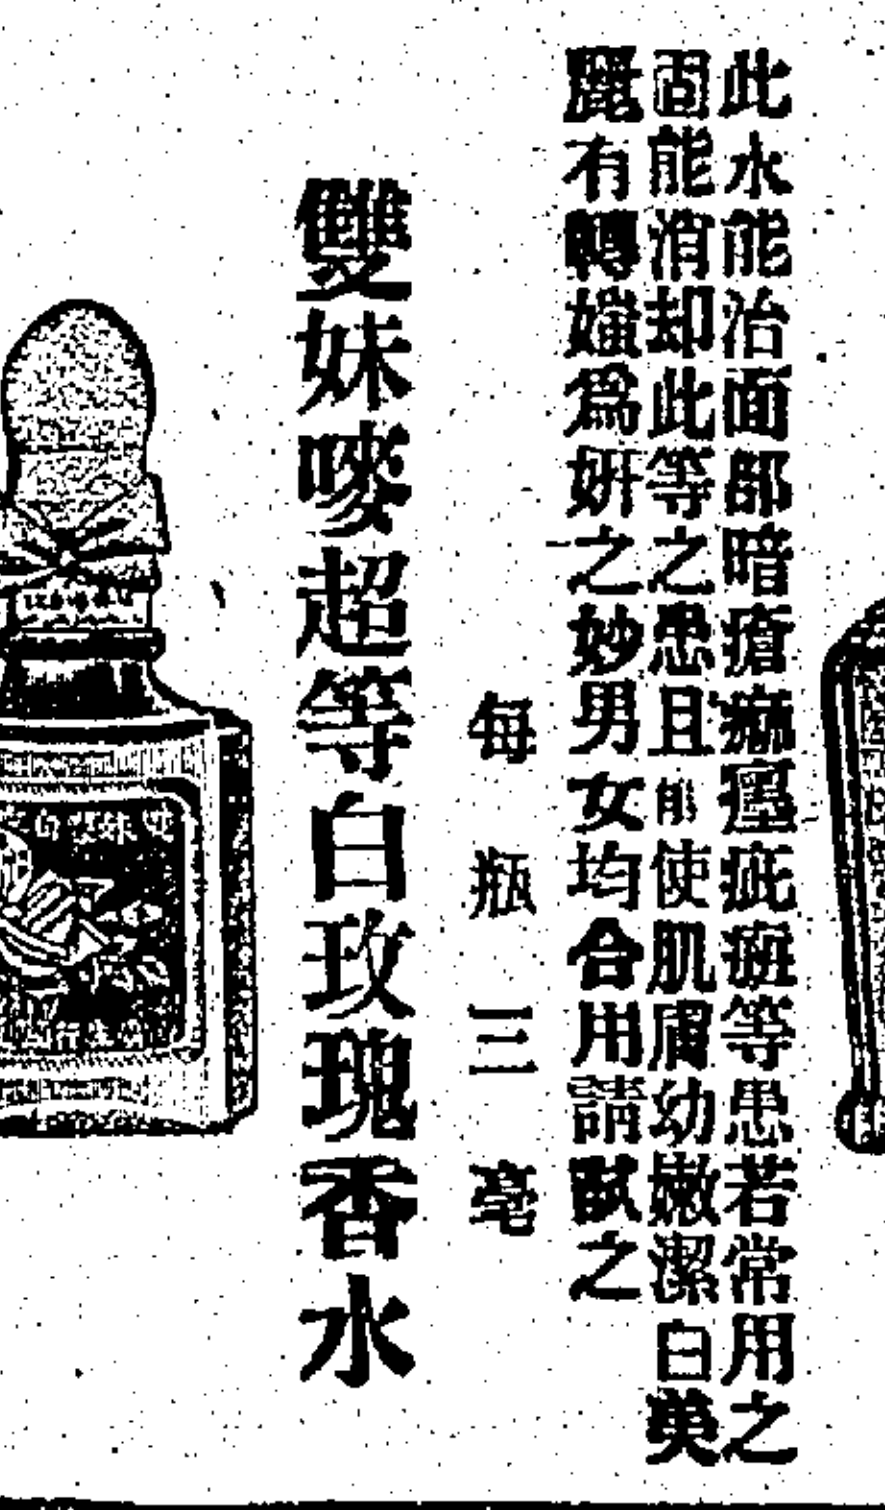 此水能治面部暗瘡痲㾗疵斑等患若常用之
固能消却此等之患且能使肌膚幼嫩潔白美
麗有轉媸爲妍之妙男女均合用請試之
每瓶三毫
雙妹嘜超等白玫瑰香水